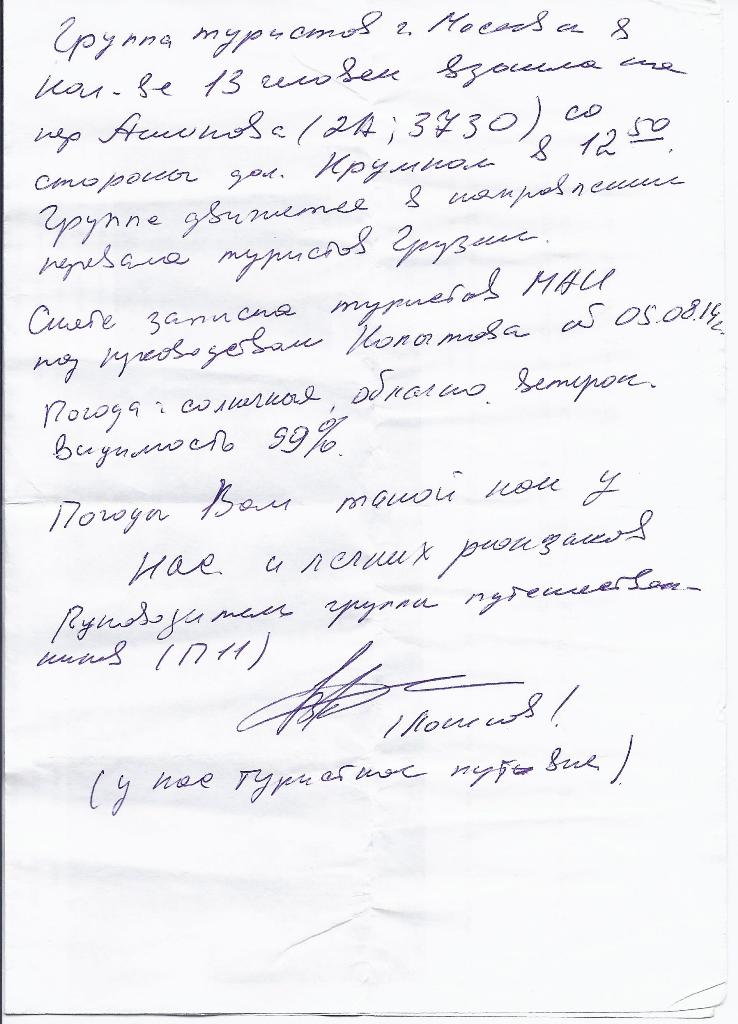 Группа туристов г. Москвы в
кол-ве 13 человек взошла на
пер Ашинова (2А; 3730) со
стороны дол. Крумкол в 12 50.
Группа движется в направлении
перевала туристов Грузии.
Снята записка туристов МАИ
под руководством Копытова от 05.08.14г.
Погода: солнечная, облачно. ветерок.
Видимость 99%.
Погоды Вам такой как у
нас и легких рюкзаков
Руководитель группы путешествен-
ников (П11)
(у нас туристкое путь-вие)